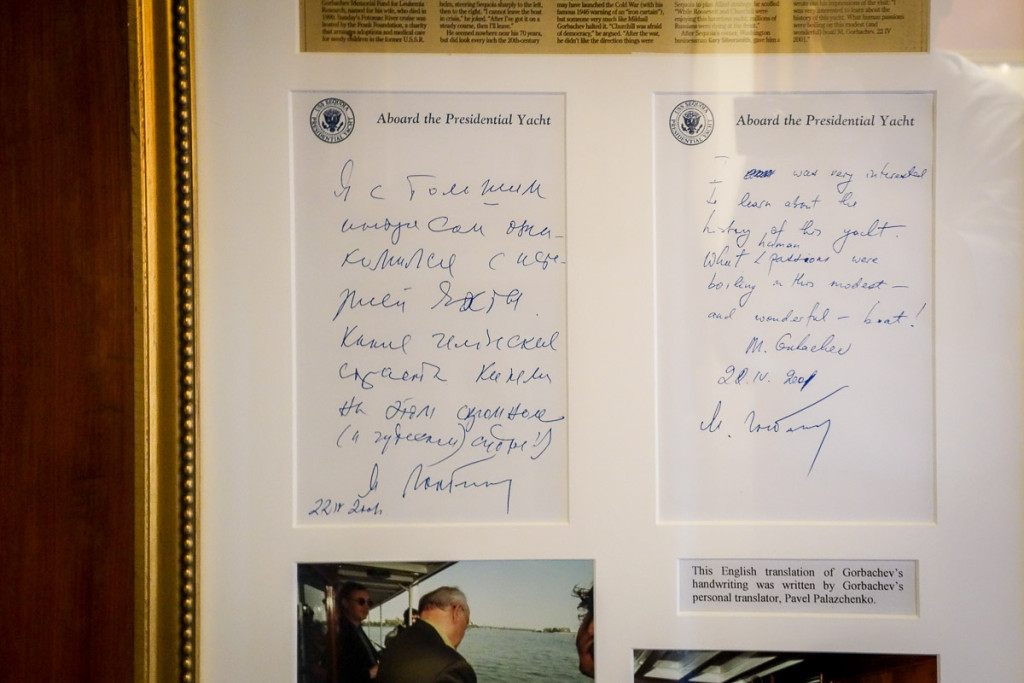 Gorbachev Memorial Fund for Leukemia
Research, named for his wife, who died in
1999. Sunday's Potomac River cruise was
hosted by the Frank Foundation, a charity
that arranges adoptions and medical
care for needy children in the former U.S.S.R.
helm, steering Sequoia sharply to the left,
then to the right. "I cannot leave the boat
in crisis," he joked. "After I've got it on a
steady course, then I'll leave."
He seemed nowhere near his 70 years,
but did look every inch the 20th-century
may have launched the Cold War (with his
famous 1946 warning of an "iron curtain"),
but someone very much like Mikhail
Gorbachev halted it. "Churchill was afraid
of democracy," he argued. "After the war,
he didn't like the direction things were
After Sequoia's owner, Washington
businessman Gary Silversmith, gave him a
wrote
was very interested to learn about the
history of this yacht. What human passions
were boiling in this modest (and
wonderful) boat! M. Gorbachev. 22 IV
2001."
USS SEQUOIA
PRESIDENTIAL YACHT
Aboard the Presidential Yacht
Я с большим
интересом озна-
комился с исто-
рией яхты.
Какие человеческие
страсти кипели
на этом скромном
(и чудесном) судне!)
М Горбачев
22 IV 2001
USS SEQUOIA
PRESIDENTIAL YACHT
Aboard the Presidential Yacht
I was very interested
to learn about the
history of this yacht.
What human passions were
boiling in this modest –
and wonderful – boat!
M. Gorbachev
22.IV. 2001
М. Горбачев
This English translation of Gorbachev's
handwriting was written by Gorbachev's
personal translator, Pavel Palazchenko.